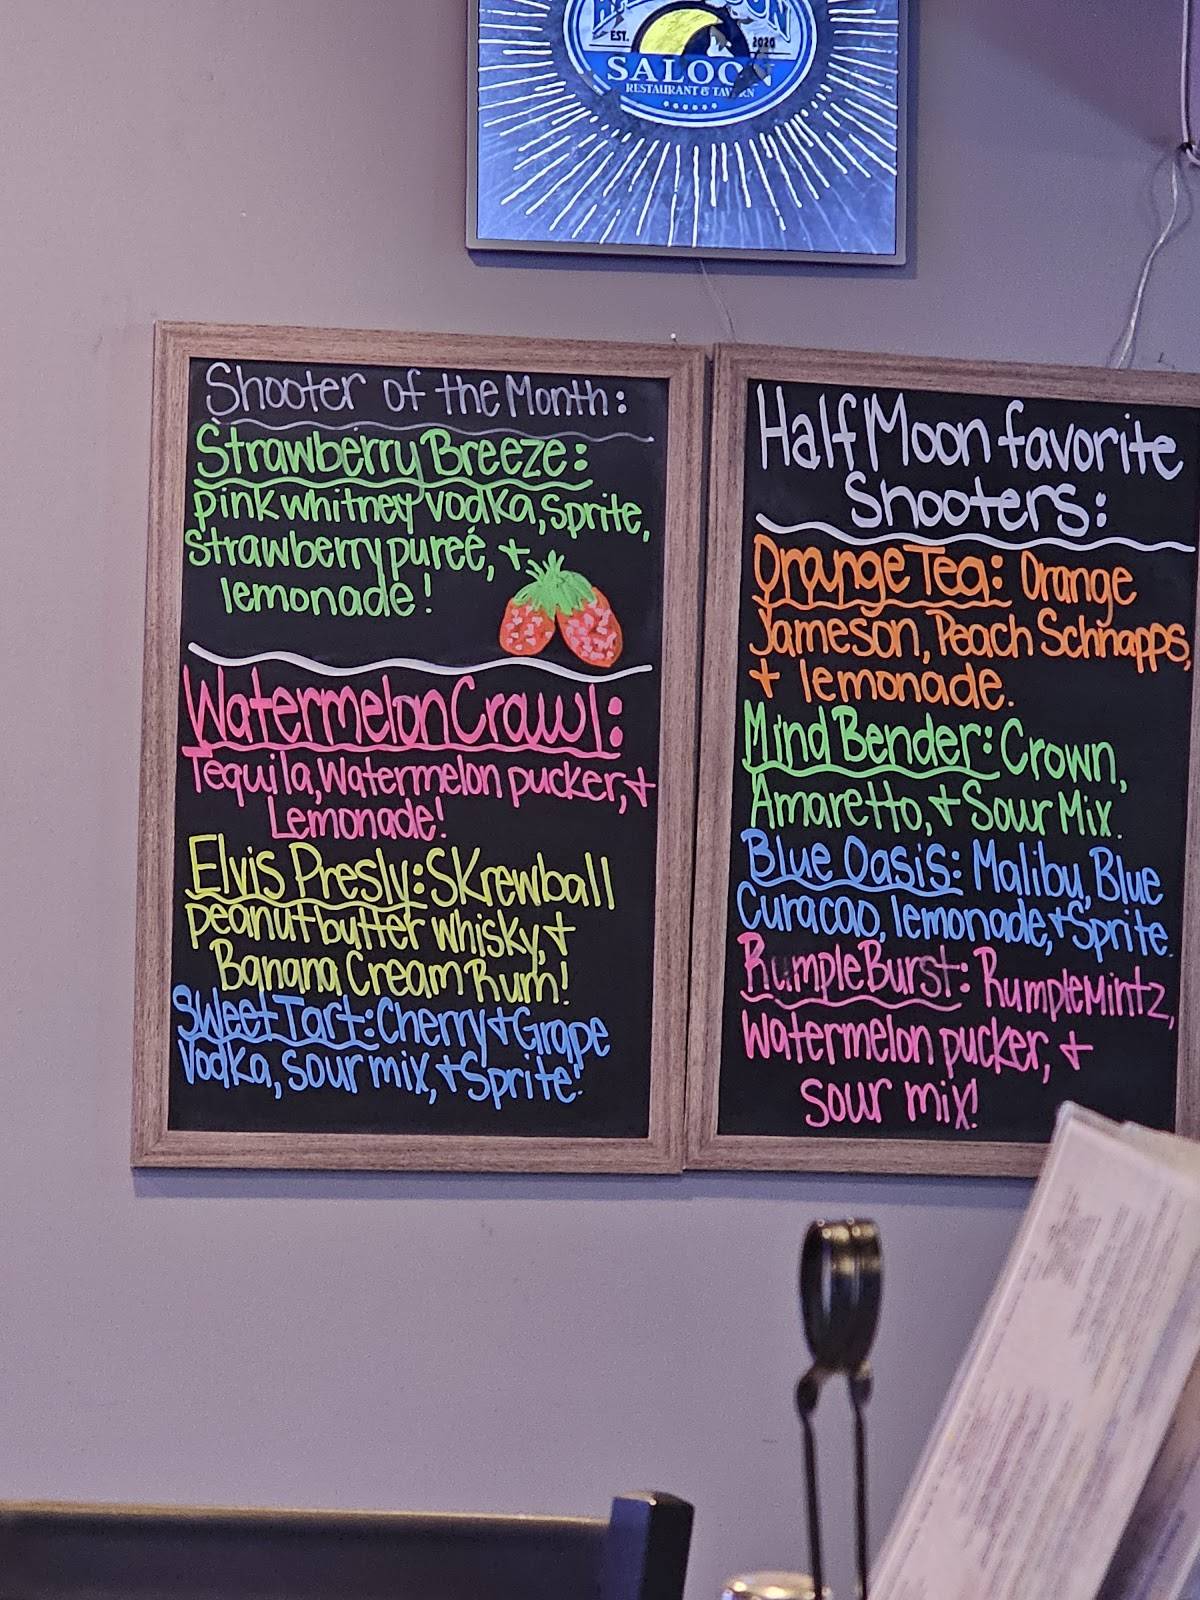 EST. 2020
SALOON
RESTAURANT & TAVERN
Shooter of the Month:
Strawberry Breeze:
pink whitney vodka, Sprite,
strawberry pureé, +
lemonade!
Watermelon Crawl:
Tequila, Watermelon pucker, +
Lemonade!
Elvis Presly: SKrewball
peanut butter whisky, +
Banana Cream Rum!
Sweet Tart: Cherry + Grape
Vodka, sour mix, + Sprite!
Half Moon favorite
Shooters:
Orange Tea: Orange
Jameson, Peach Schnapps,
+ lemonade.
Mind Bender: Crown,
Amaretto, + Sour Mix.
Blue Oasis: Malibu, Blue
Curacao, lemonade, + Sprite.
Rumple Burst: Rumplemintz,
Watermelon pucker, +
sour mix!